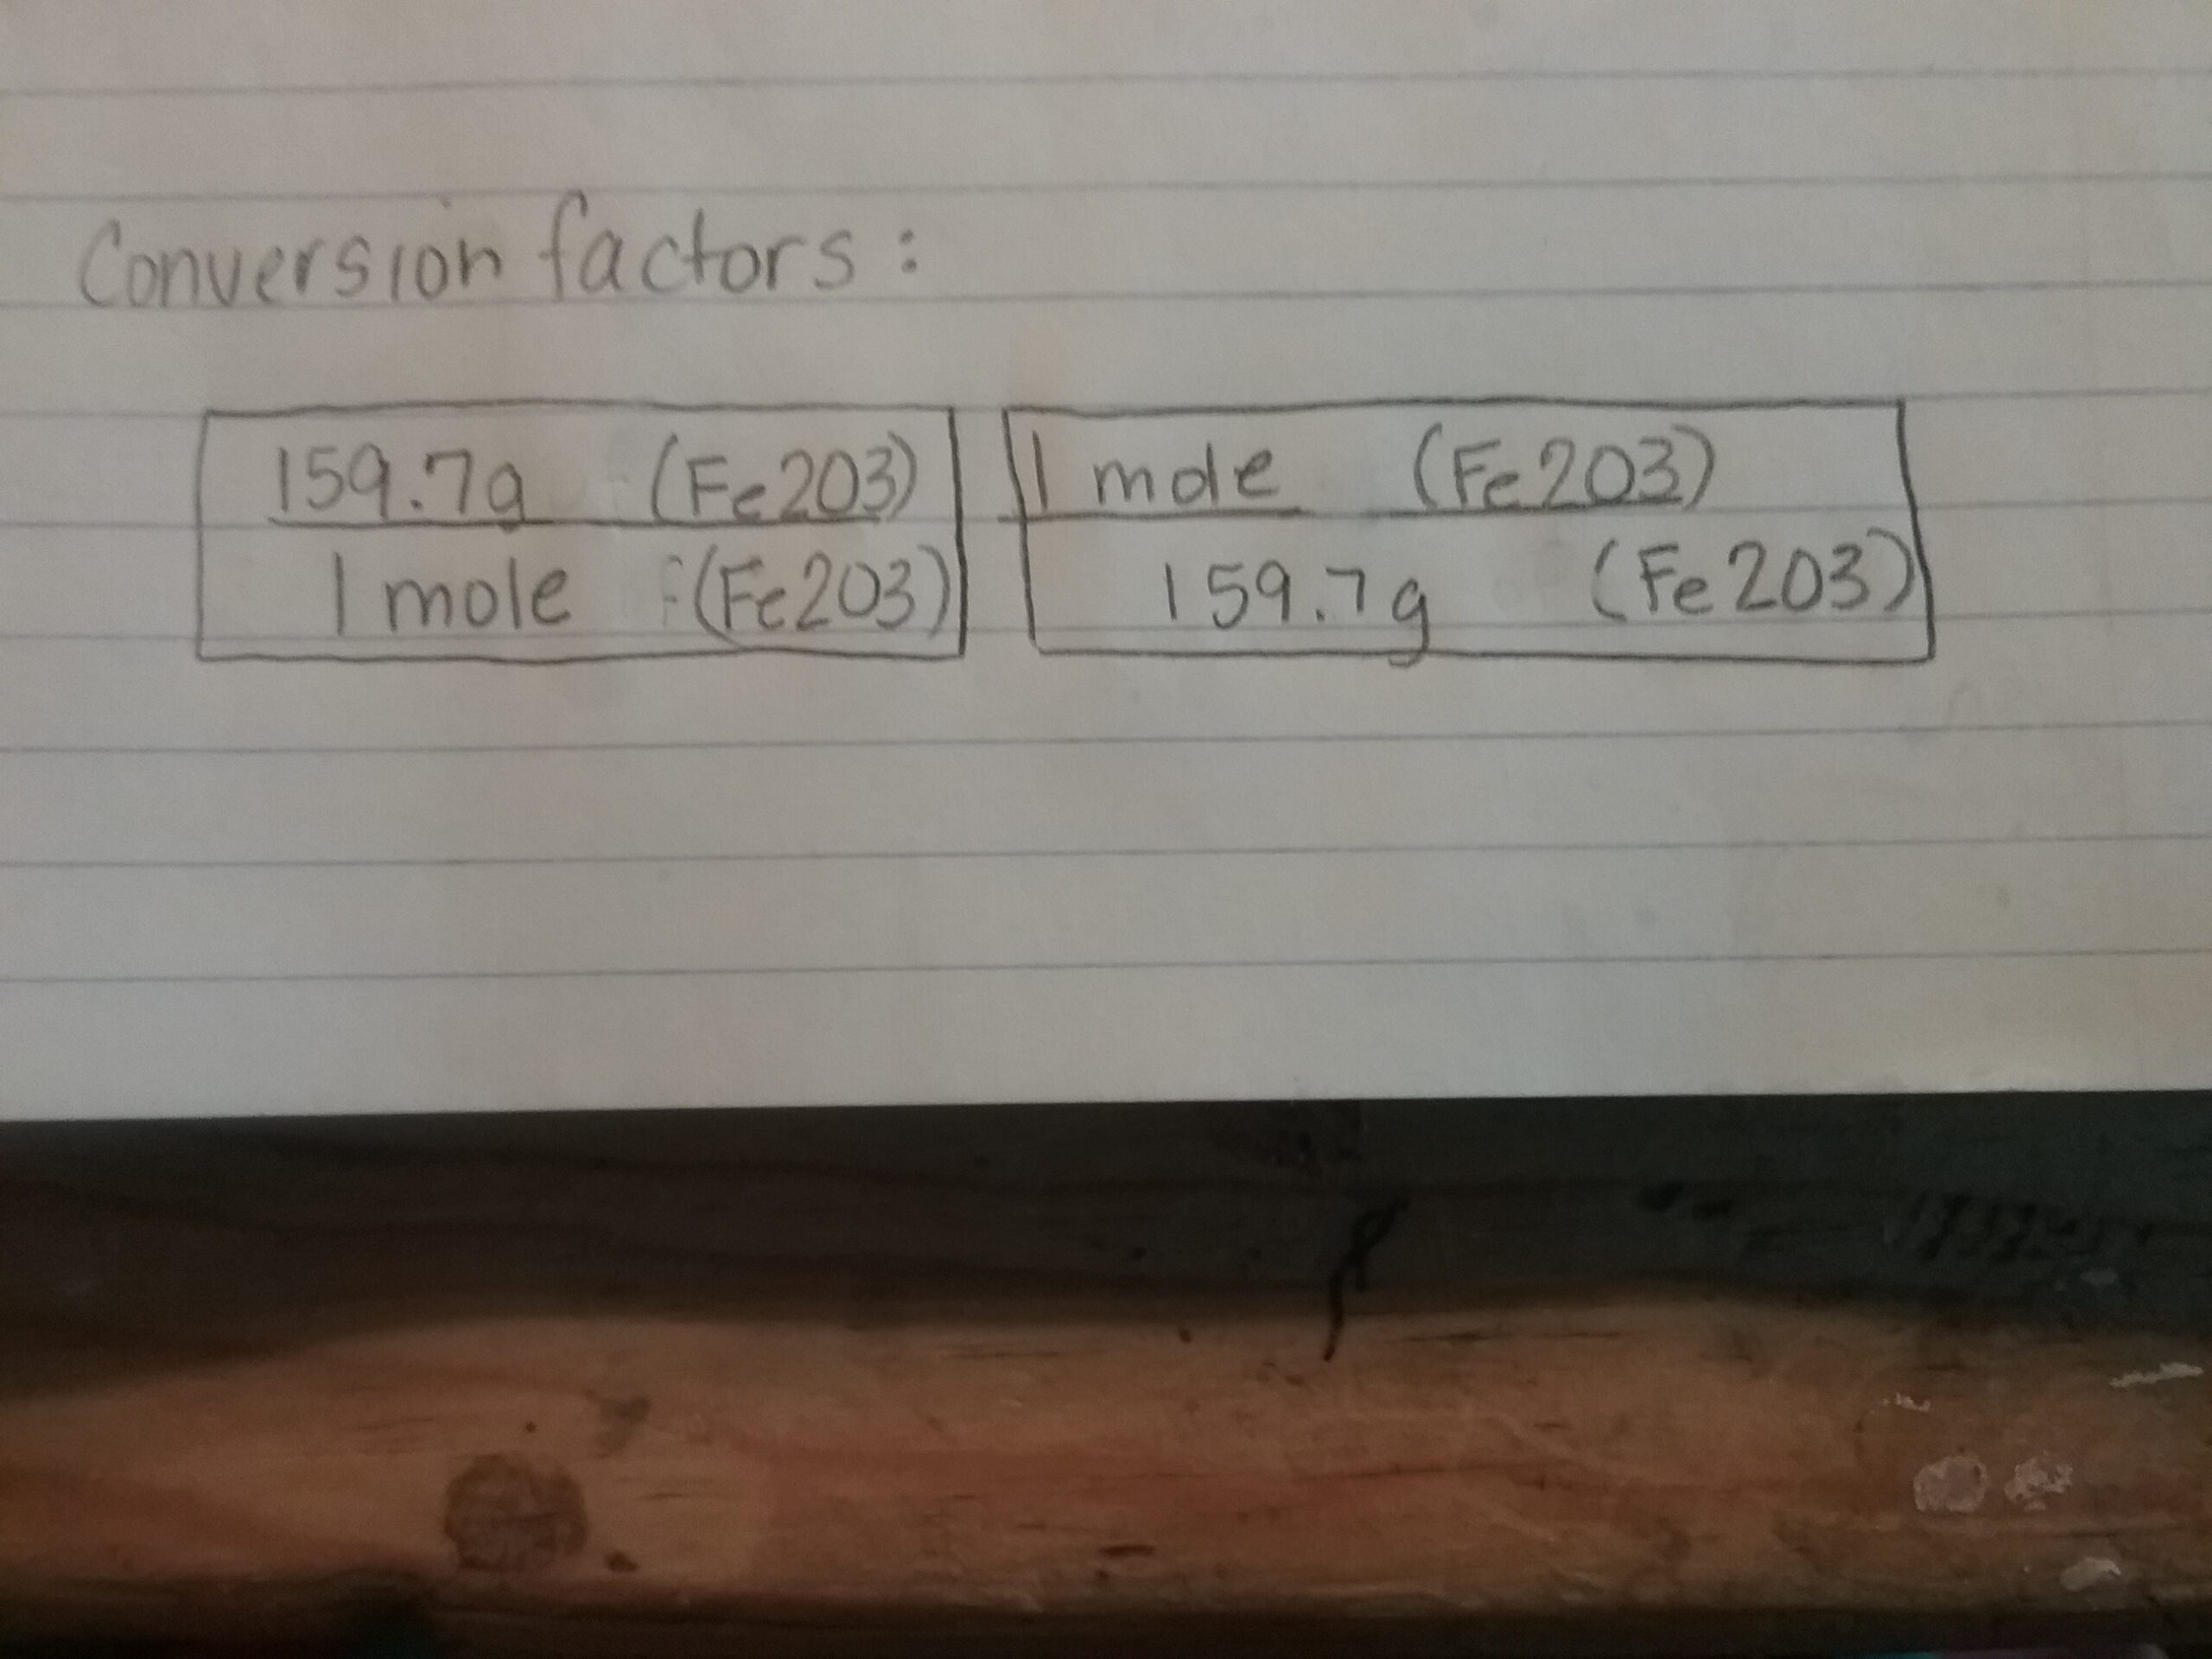 Conversion factors:
159.7g (Fe203) 1 mole (Fe203)
1 mole (Fe203) 159.7g (Fe203)